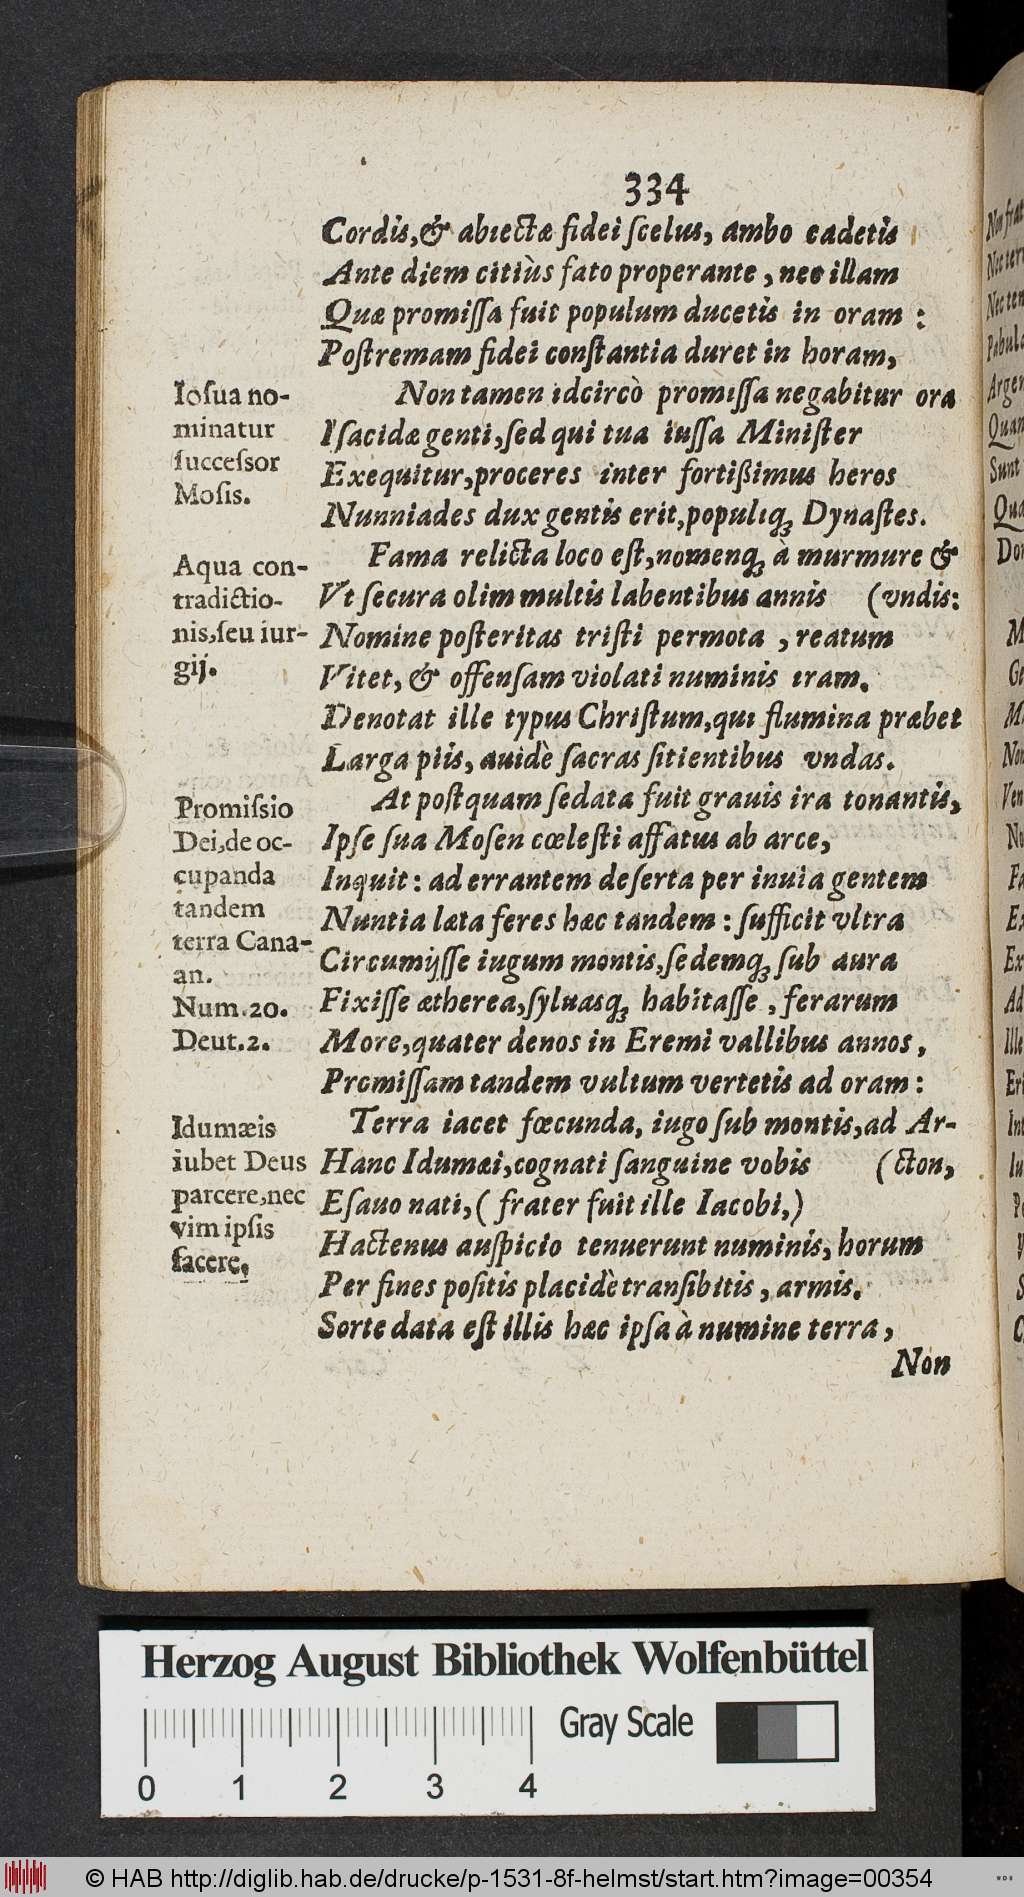 334
Cordis,& abiectæ fidei ſcelus, ambo cadetis
Ante diem citiùs fato properante, nec illam
Quæ promiſſa fuit populum ducetis in oram :
Poſtremam fidei conſtantia duret in horam,
Ioſua no-
minatur
ſucceſsor
Moſis.
Non tamen idcircò promiſſa negabitur ora
Iſacidæ genti,ſed qui tua iuſſa Miniſter
Exequitur,proceres inter fortißimus heros
Nunniades dux gentis erit,populiqꝫ Dynaſtes.
Aqua con-
tradictio-
nis,ſeu iur-
gij.
Fama relicta loco eſt,nomenqꝫ à murmure &
Vt ſecura olim multis labentibus annis (vndis:
Nomine poſteritas triſti permota , reatum
Vitet, & offenſam violati numinis iram.
Denotat ille typus Chriſtum,qui flumina præbet
Larga piis, auidè ſacras ſitientibus vndas.
Promiſsio
Dei,de oc-
cupanda
tandem
terra Cana-
an.
Num.20.
Deut.2.
At poſtquam ſedata fuit grauis ira tonantis,
Ipſe ſua Moſen cœleſti affatus ab arce,
Inquit: ad errantem deſerta per inuia gentem
Nuntia læta feres hæc tandem : ſufficit vltra
Circumijſſe iugum montis,ſedemqꝫ ſub aura
Fixiſſe ætherea,ſyluasqꝫ habitaſſe , ferarum
More,quater denos in Eremi vallibus annos,
Promiſſam tandem vultum vertetis ad oram :
Idumæis
iubet Deus
parcere,nec
vim ipſis
facere.
Terra iacet fœcunda, iugo ſub montis,ad Ar-
Hanc Idumæi,cognati ſanguine vobis (cton,
Eſauo nati, ( frater fuit ille Iacobi,)
Hactenus auſpicio tenuerunt numinis, horum
Per fines poſitis placidè tranſibitis , armis.
Sorte data eſt illis hæc ipſa à numine terra,
Non
Herzog August Bibliothek Wolfenbüttel
Gray Scale
0 1 2 3 4
© HAB http://diglib.hab.de/drucke/p-1531-8f-helmst/start.htm?image=00354